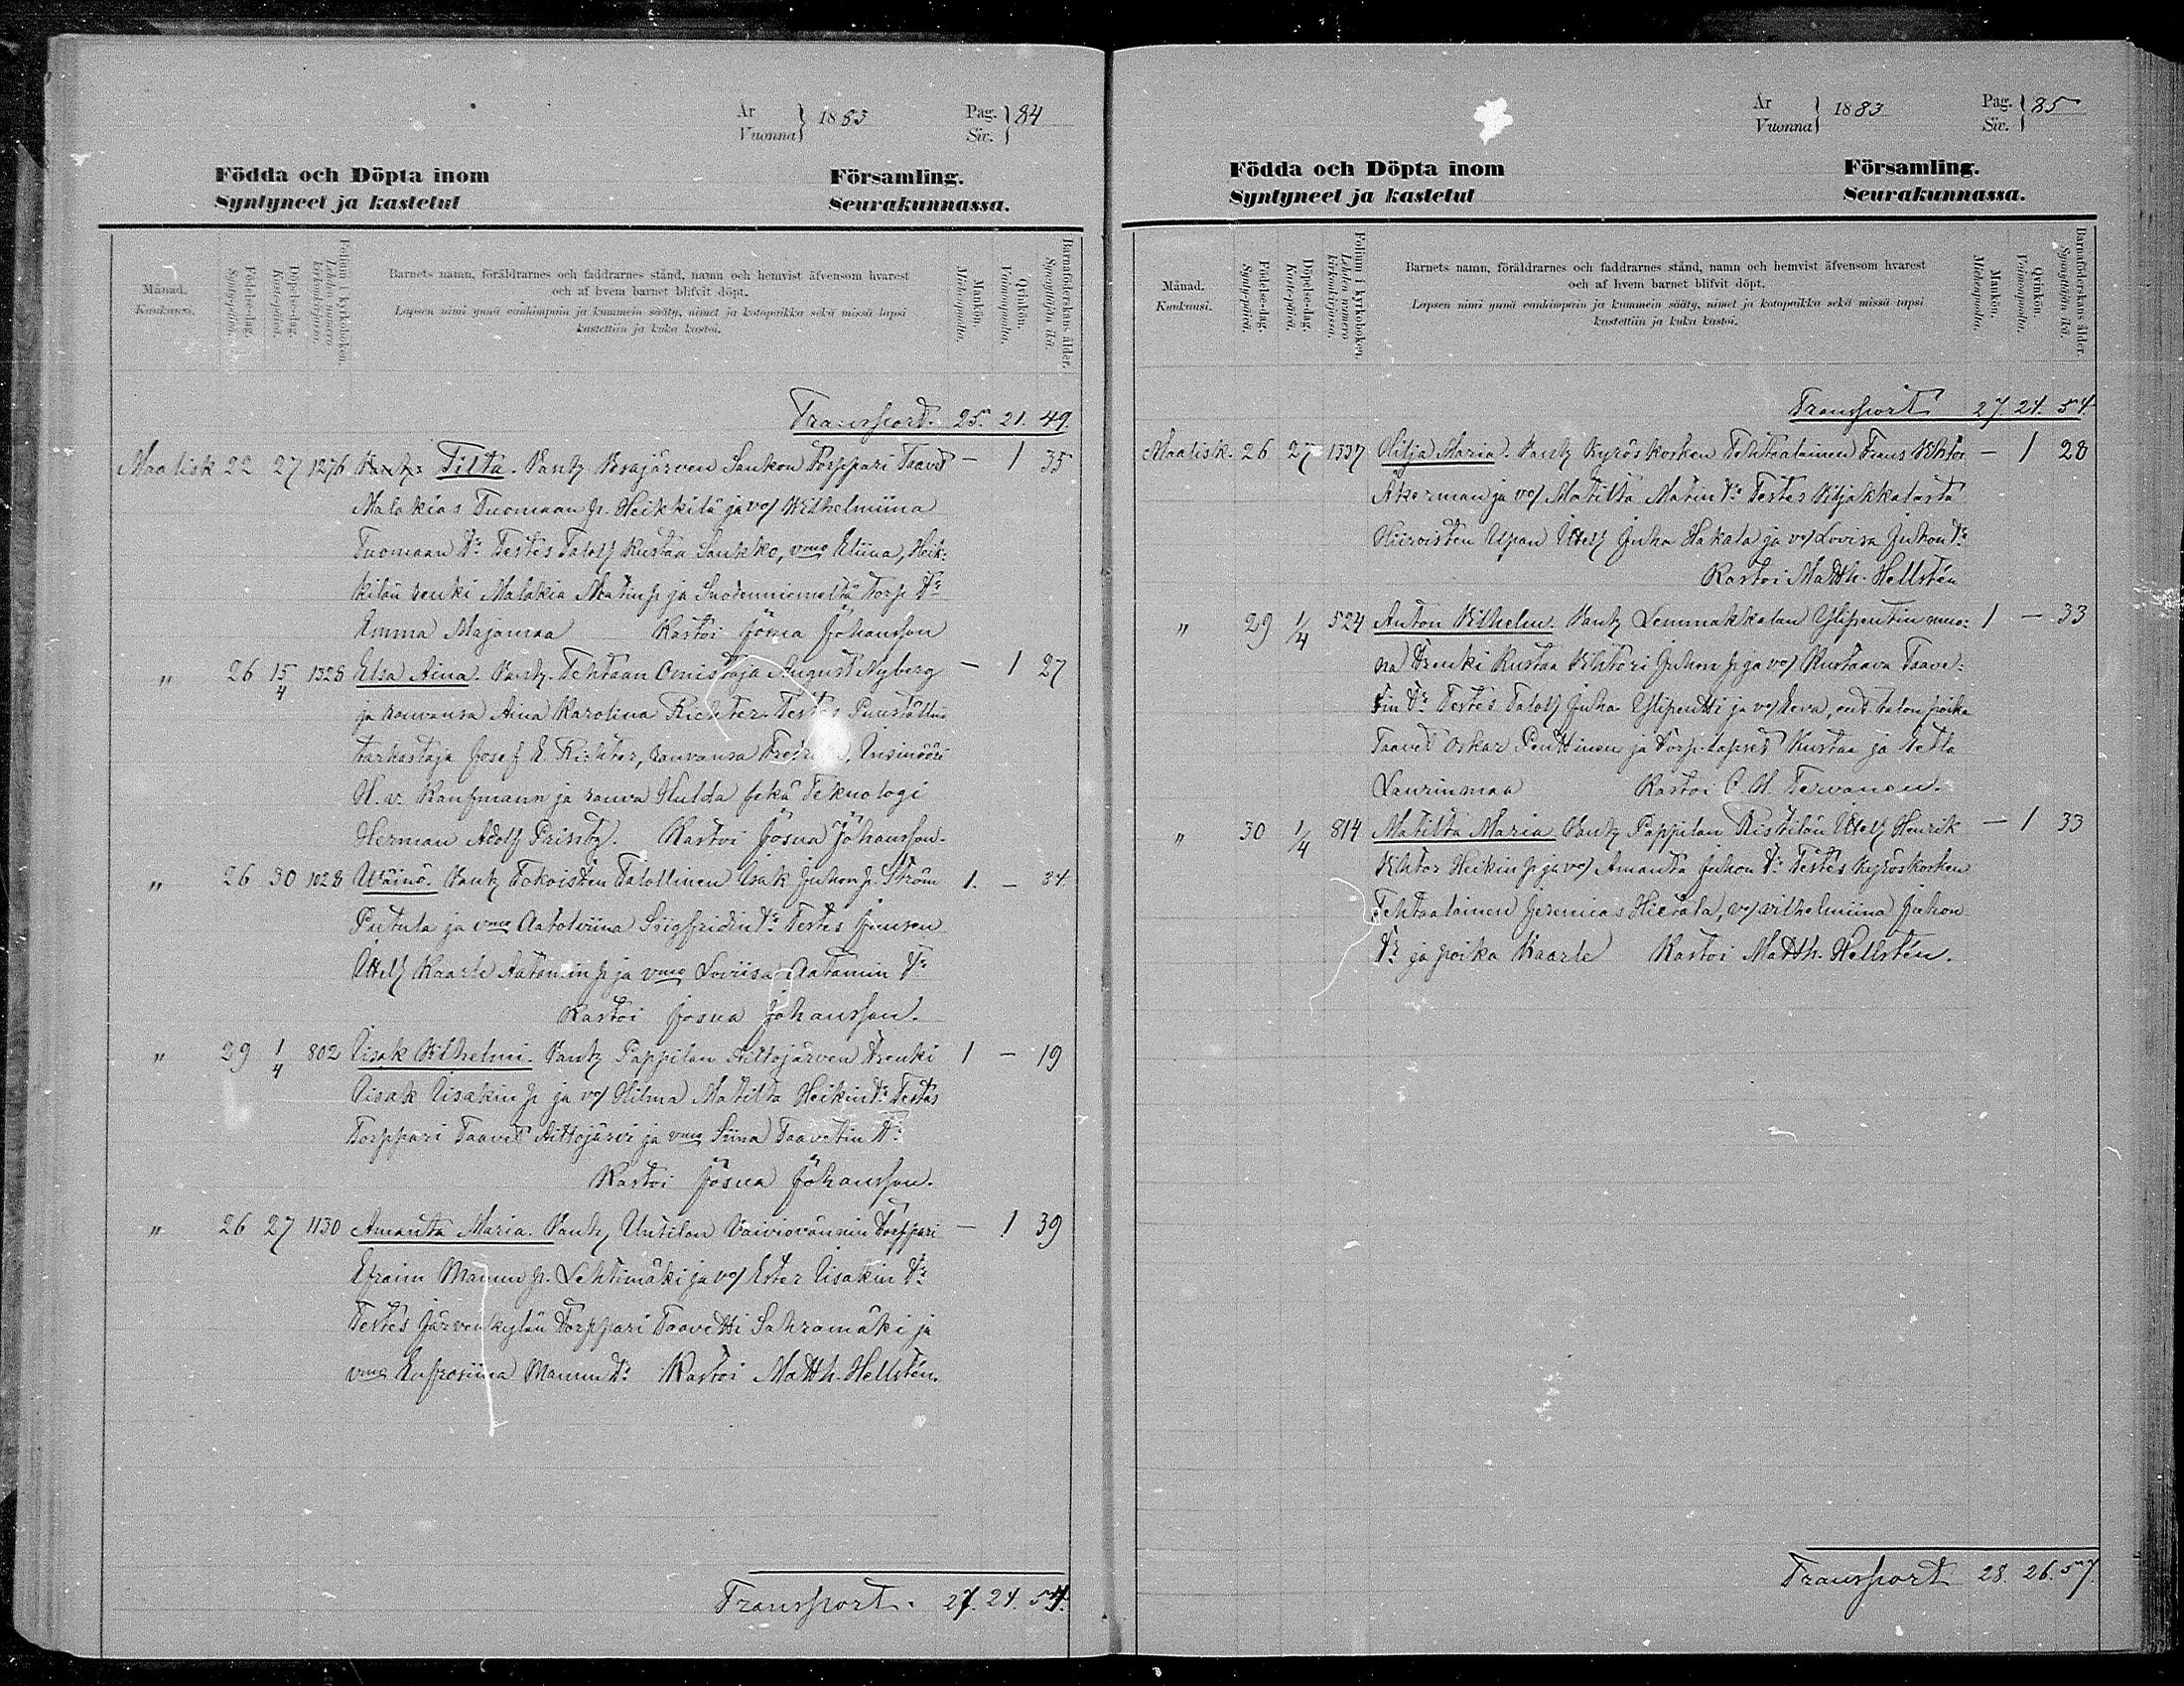 År
Vuonna } 1883 Pag.
Siv. } 84
Födda och Döpta inom Församling.
Syntyneet ja kastetut Seurakunnassa.
Månad.
Kuukausi.
Födelsedag.
Syntypäivä.
Döpelsedag.
Kastepäivä.
Folium i kyrkoboken.
Lehden numero kirkonkirjassa.
Barnets namn, föräldrarnes och faddrarnes stånd, namn och hemvist äfvensom hvarest
och af hvem barnet blifvit döpt.
Lapsen nimi ynnä vanhimpain ja kummein sääty, nimet ja kotopaikka sekä missä lapsi
kastettiin ja kuka kastoi.
Mankön.
Miehenpuolia.
Qvinkön.
Vaimonpuolia.
Barnaföderskans ålder.
Synnyttäjän ikä.
Transport. 25. 21. 49.
Maalisk 22 27 1276 Tilta. Vanh. Sankon Torppari Taavet — 1 35
Malakias Tuomaan p. Heikkilä ja vo/ Wilhelmiina
Tuomaan Tr Testes Taloll Kustaa Sankko, vmo Eliina, Heik-
kilän renki Malakia Matin p ja Suodenniemeltä Torp Tr
Emma Majamaa Kastoi Josua Johansson
" 26 15/4 1328 Elsa Aina. Vanh. Tehtaan Omistaja August Nyberg — 1 27
ja rouvansa Aina Karolina Richter. Testes
tarkastaja Josef E. Richter, rouvansa Insinööri
H. v. Kaufmann ja rouva Hulda sekä Teknologi
Herman Adolf Printz. Kastoi Josua Johansson.
" 26 30 1028 Wäinö. Vanh Tokoisten Talollinen Isak Juhon p. Ström 1. — 34.
ja vmo Aatolviina Sigfridin Tr Testes
Itsell Kaarle Aatamin p ja vmo Loviisa Aatamin Tr
Kastoi Josua Johansson.
" 29 1/4 802 Iisak Vilhelmi. Vanh Pappilan Aittojärven Trenki 1 — 19
Iisak Iisakin p ja vo/ Hilma Matilta Heikin Tr Testes
Torppari Taavet Aittojärvi ja vmo Siina Taavetin Tr
Kastoi Josua Johansson.
" 26 27 1130 Amanta Maria. Vanh, Untilan Torppari — 1 39
Efraim Manun p. Lehtimäki ja vo/ Ester Iisakin Tr
Testes Järvenkylän Torppari Taavetti Sahramäki ja
vmo Eufrosiina Manun Tr Kastoi Matth. Hellstén.
Transport. 27. 24. 54.
År
Vuonna } 1883 Pag.
Siv. } 85
Födda och Döpta inom Församling.
Syntyneet ja kastetut Seurakunnassa.
Månad.
Kuukausi.
Födelsedag.
Syntypäivä
Döpelsedag.
Kastepäivä.
Folium i kyrkoboken.
Lehden numero kirkonkirjassa.
Barnets namn, föräldrarnes och faddrarnes stånd, namn och hemvist äfvensom hvarest
och af hvem barnet blifvit döpt.
Lapsen nimi ynnä vanhimpain ja kummein sääty, nimet ja kotopaikka sekä missä lapsi
kastettiin ja kuka kastoi.
Mankön.
Miehenpuolia.
Qvinkön.
Vaimonpuolia.
Barnaföderskans ålder.
Synnyttäjän ikä.
Transport 27. 24. 54
Maalisk. 26 27 1337 Hilja Maria. Vanh Kyröskosken Tehtaalainen Frans Viktor — 1 28
Åkerman ja vo/ Matilta Matin Tr Testes Viljakkalasta
Hiiroisten Itsell Juha Hakala ja vo/ Lovisa Juhon Tr
Kastoi Matth. Hellstén
" 29 1/4 524 Anton Vilhelm. Vanh Lemmakkalan Ylipentin muo- 1 — 33
na Trenki Kustaa Vihtori Juhon p ja vo/ Kustaava Taave-
tin Tr Testes Taloll Juha Ylipentti ja vo/ Eeva, ent. talon poika
Taavet Oskar Penttinen ja Torp. lapset Kustaa ja Netta
Laurinmaa Kastoi C. H. Tervonen.
" 30 1/4 814 Matilta Maria Vanh Pappilan Ristilän Itsell Henrik — 1 33
Vihtor Heikin p ja vo/ Amanta Juhon Tr Testes Kyröskosken
Tehtaalainen Jeremias Hietala, vo/ Vilhelmiina Juhon
Tr ja poika Kaarle Kastoi Matth. Hellstén.
Transport 28. 26. 57.